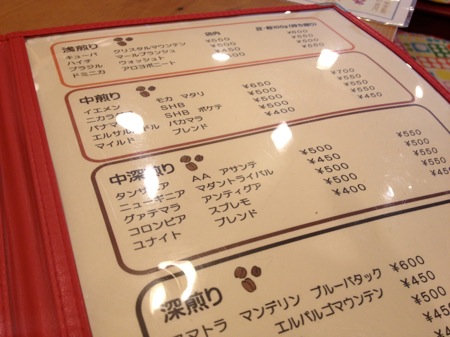 浅煎り 店内 豆・粉100g(持ち帰り)
キューバ クリスタルマウンテン ¥550 ¥600
ハイチ マールブランシュ ¥500 ¥500
ブラジル ウォッシュト ¥450 ¥500
ドミニカ アロヨボニート ¥500 ¥550
中煎り
イエメン モカ マタリ ¥650 ¥700
ニカラグア SHB ¥500 ¥550
パナマ SHB ボケテ ¥500 ¥550
エルサルバドル パカマラ ¥500 ¥550
マイルド ブレンド ¥400 ¥450
中深煎り
タンザニア AA アサンテ ¥500 ¥550
ニューギニア マダントライバル ¥450 ¥450
グァテマラ アンティグア ¥500 ¥550
コロンビア スプレモ ¥500 ¥550
ユナイト ブレンド ¥400 ¥450
深煎り
スマトラ マンデリン ブルーバタック ¥600
エルパルゴマウンテン ¥450
¥500
¥450